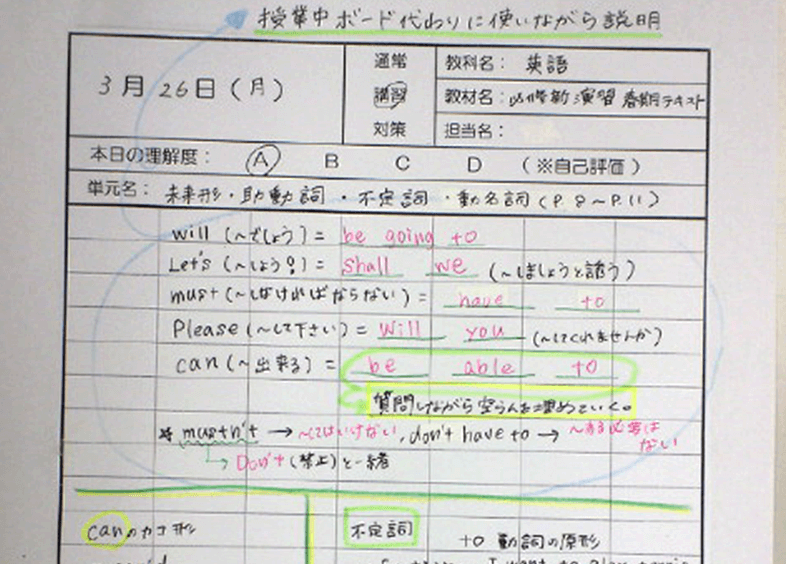 授業中ボード代わりに使いながら説明
3月26日(月)
通常
講習
対策
教科名: 英語
教材名: 新演習 春期テキスト
担当名:
本日の理解度: A B C D (※自己評価)
単元名: 未来形・助動詞・不定詞・動名詞(P.8~P.11)
will(~でしょう)= be going to
Let's(~しよう!)= Shall we (~しましょうと誘う)
must(~しなければならない)= have to
Please(~して下さい)= Will you (~してくれませんか)
can(~出来る)= be able to
質問しながら空らんを埋めていく。
* mustn't → ~してはいけない, don't have to → ~する必要はない
→ Don't(禁止)と一緒
canのカコ形
不定詞
to 動詞の原形
I want to play